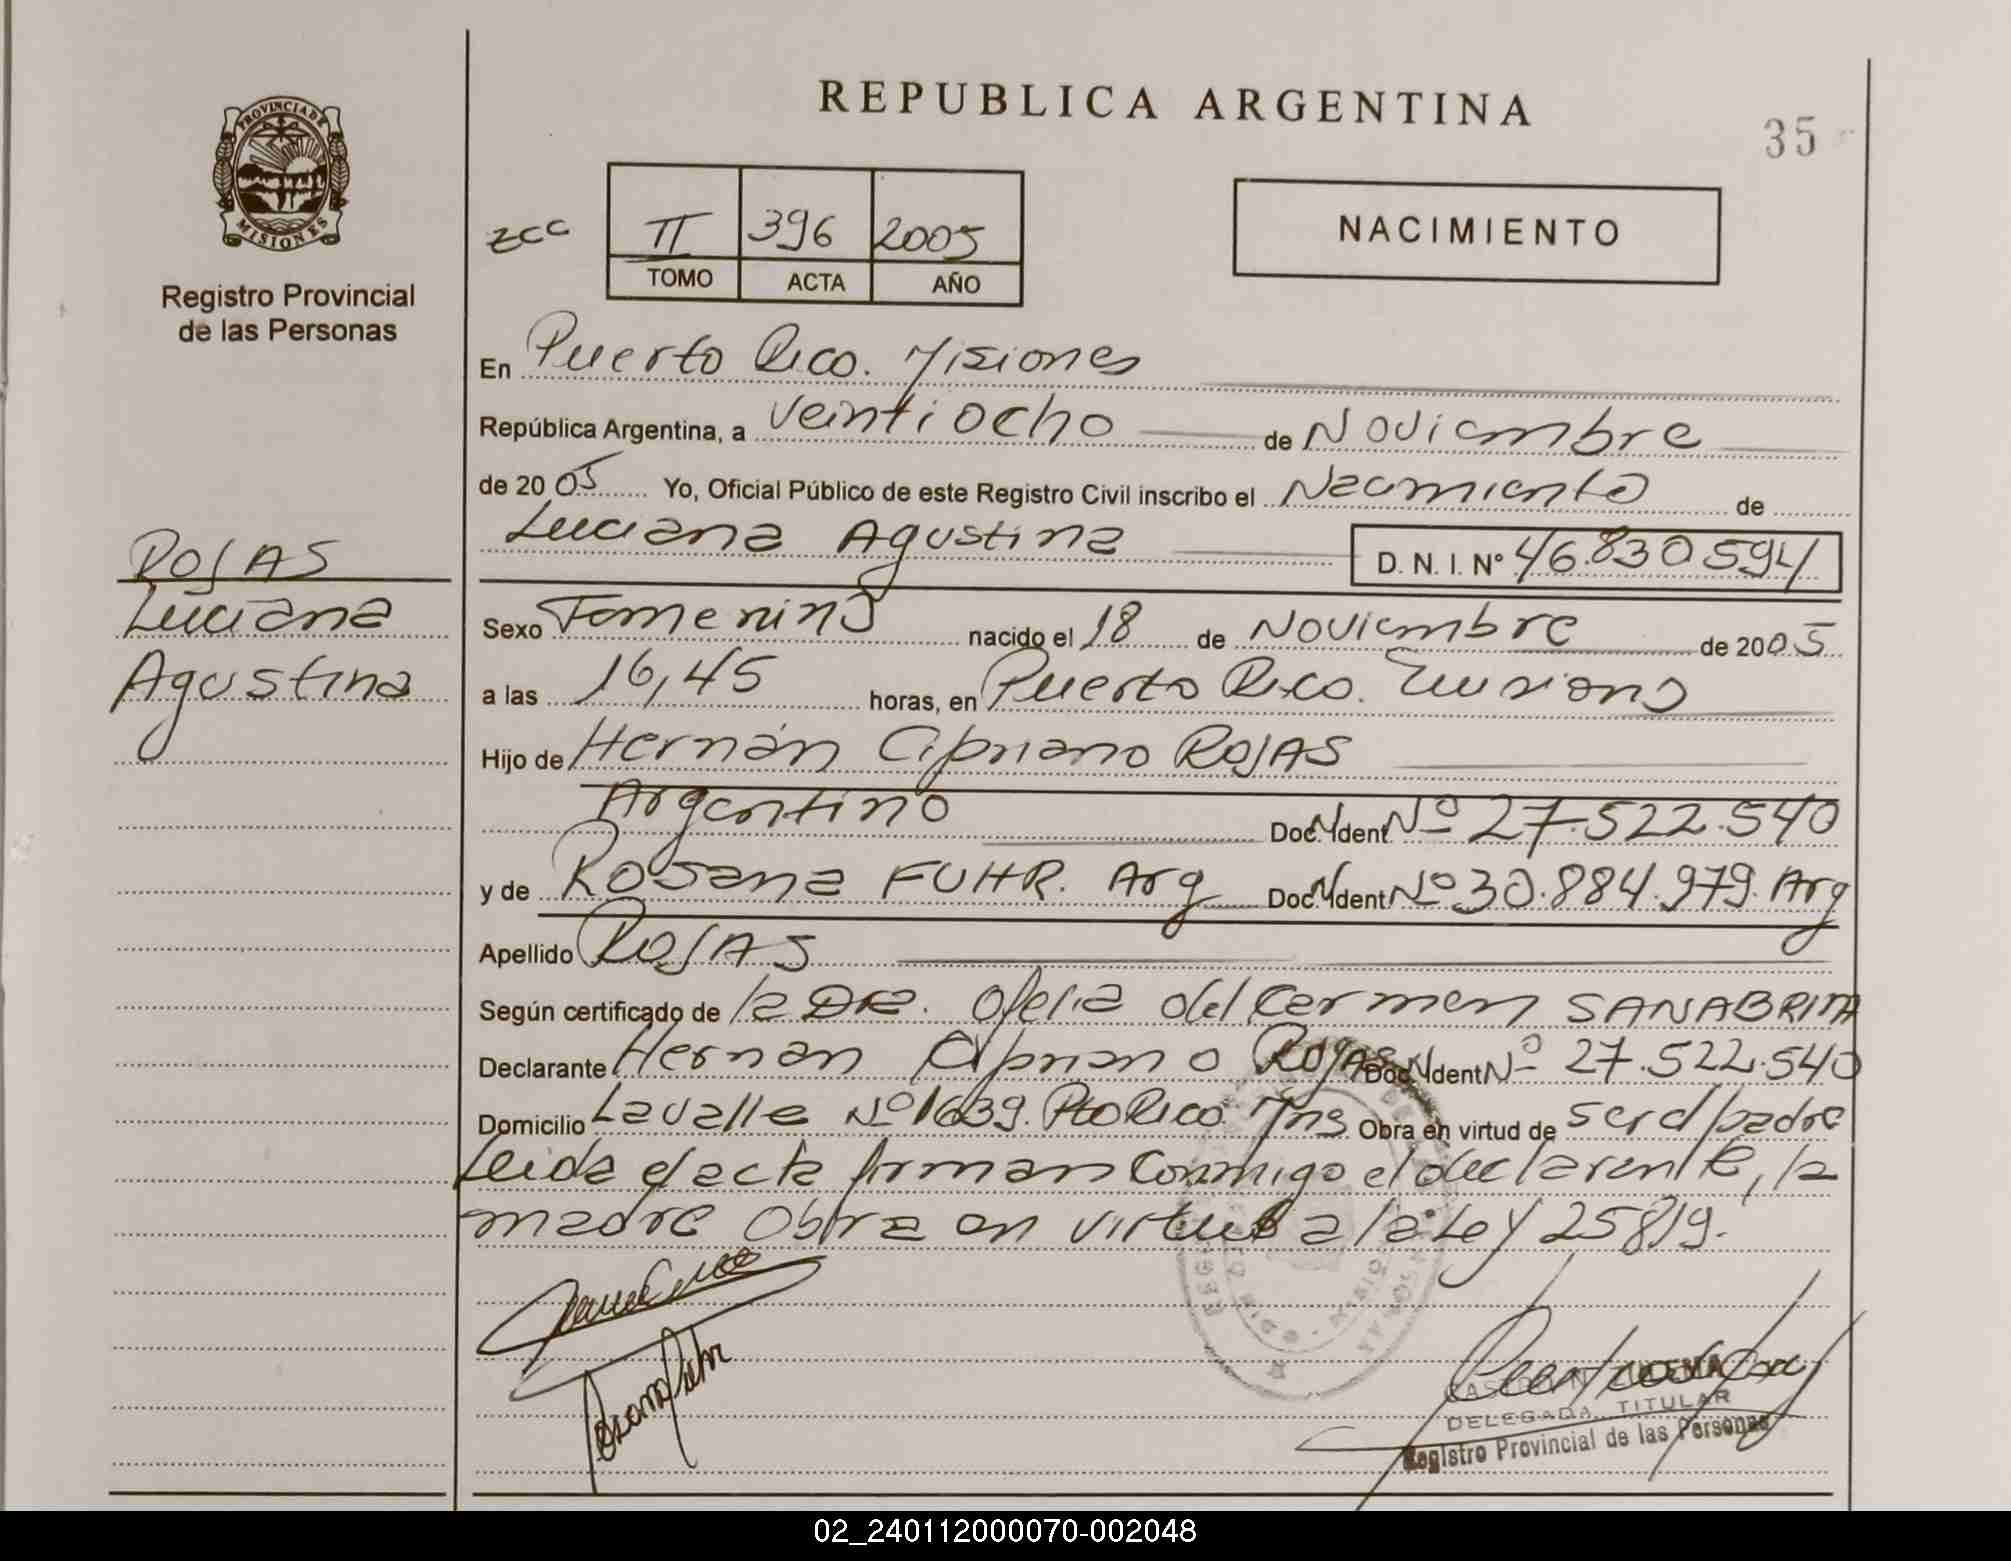 PROVINCIA DE
MISIONES
Registro Provincial
de las Personas
REPUBLICA ARGENTINA
35
zcc
II 396 2005
TOMO ACTA AÑO
NACIMIENTO
En Puerto Rico. Misiones
República Argentina, a veintiocho de Noviembre
de 2005 Yo, Oficial Público de este Registro Civil inscribo el Nacimiento de
Luciana Agustina D. N. I. Nº 46.830594
ROJAS
Luciana
Agustina
Sexo Femenino nacido el 18 de Noviembre de 2005
a las 16,45 horas, en Puerto Rico.
Hijo de Hernán Cipriano ROJAS
Argentino Doc. Ident. Nº 27.522.540
y de Rosana FUHR. Arg Doc. Ident. Nº 30.884.979. Arg
Apellido ROJAS
Según certificado de la DRA. Ofelia del Carmen SANABRIA
Declarante Hernan Cipriano ROJAS Doc. Ident Nº 27.522.540
Domicilio Lavalle Nº 1639. Pto Rico. Mns Obra en virtud de ser el padre
Leida el acta firman conmigo el declarante, la
madre Obra en virtud a la Ley 25819.
Rosana Fuhr
ZULEMA
DELEGADA TITULAR
Registro Provincial de las Personas
02_240112000070-002048